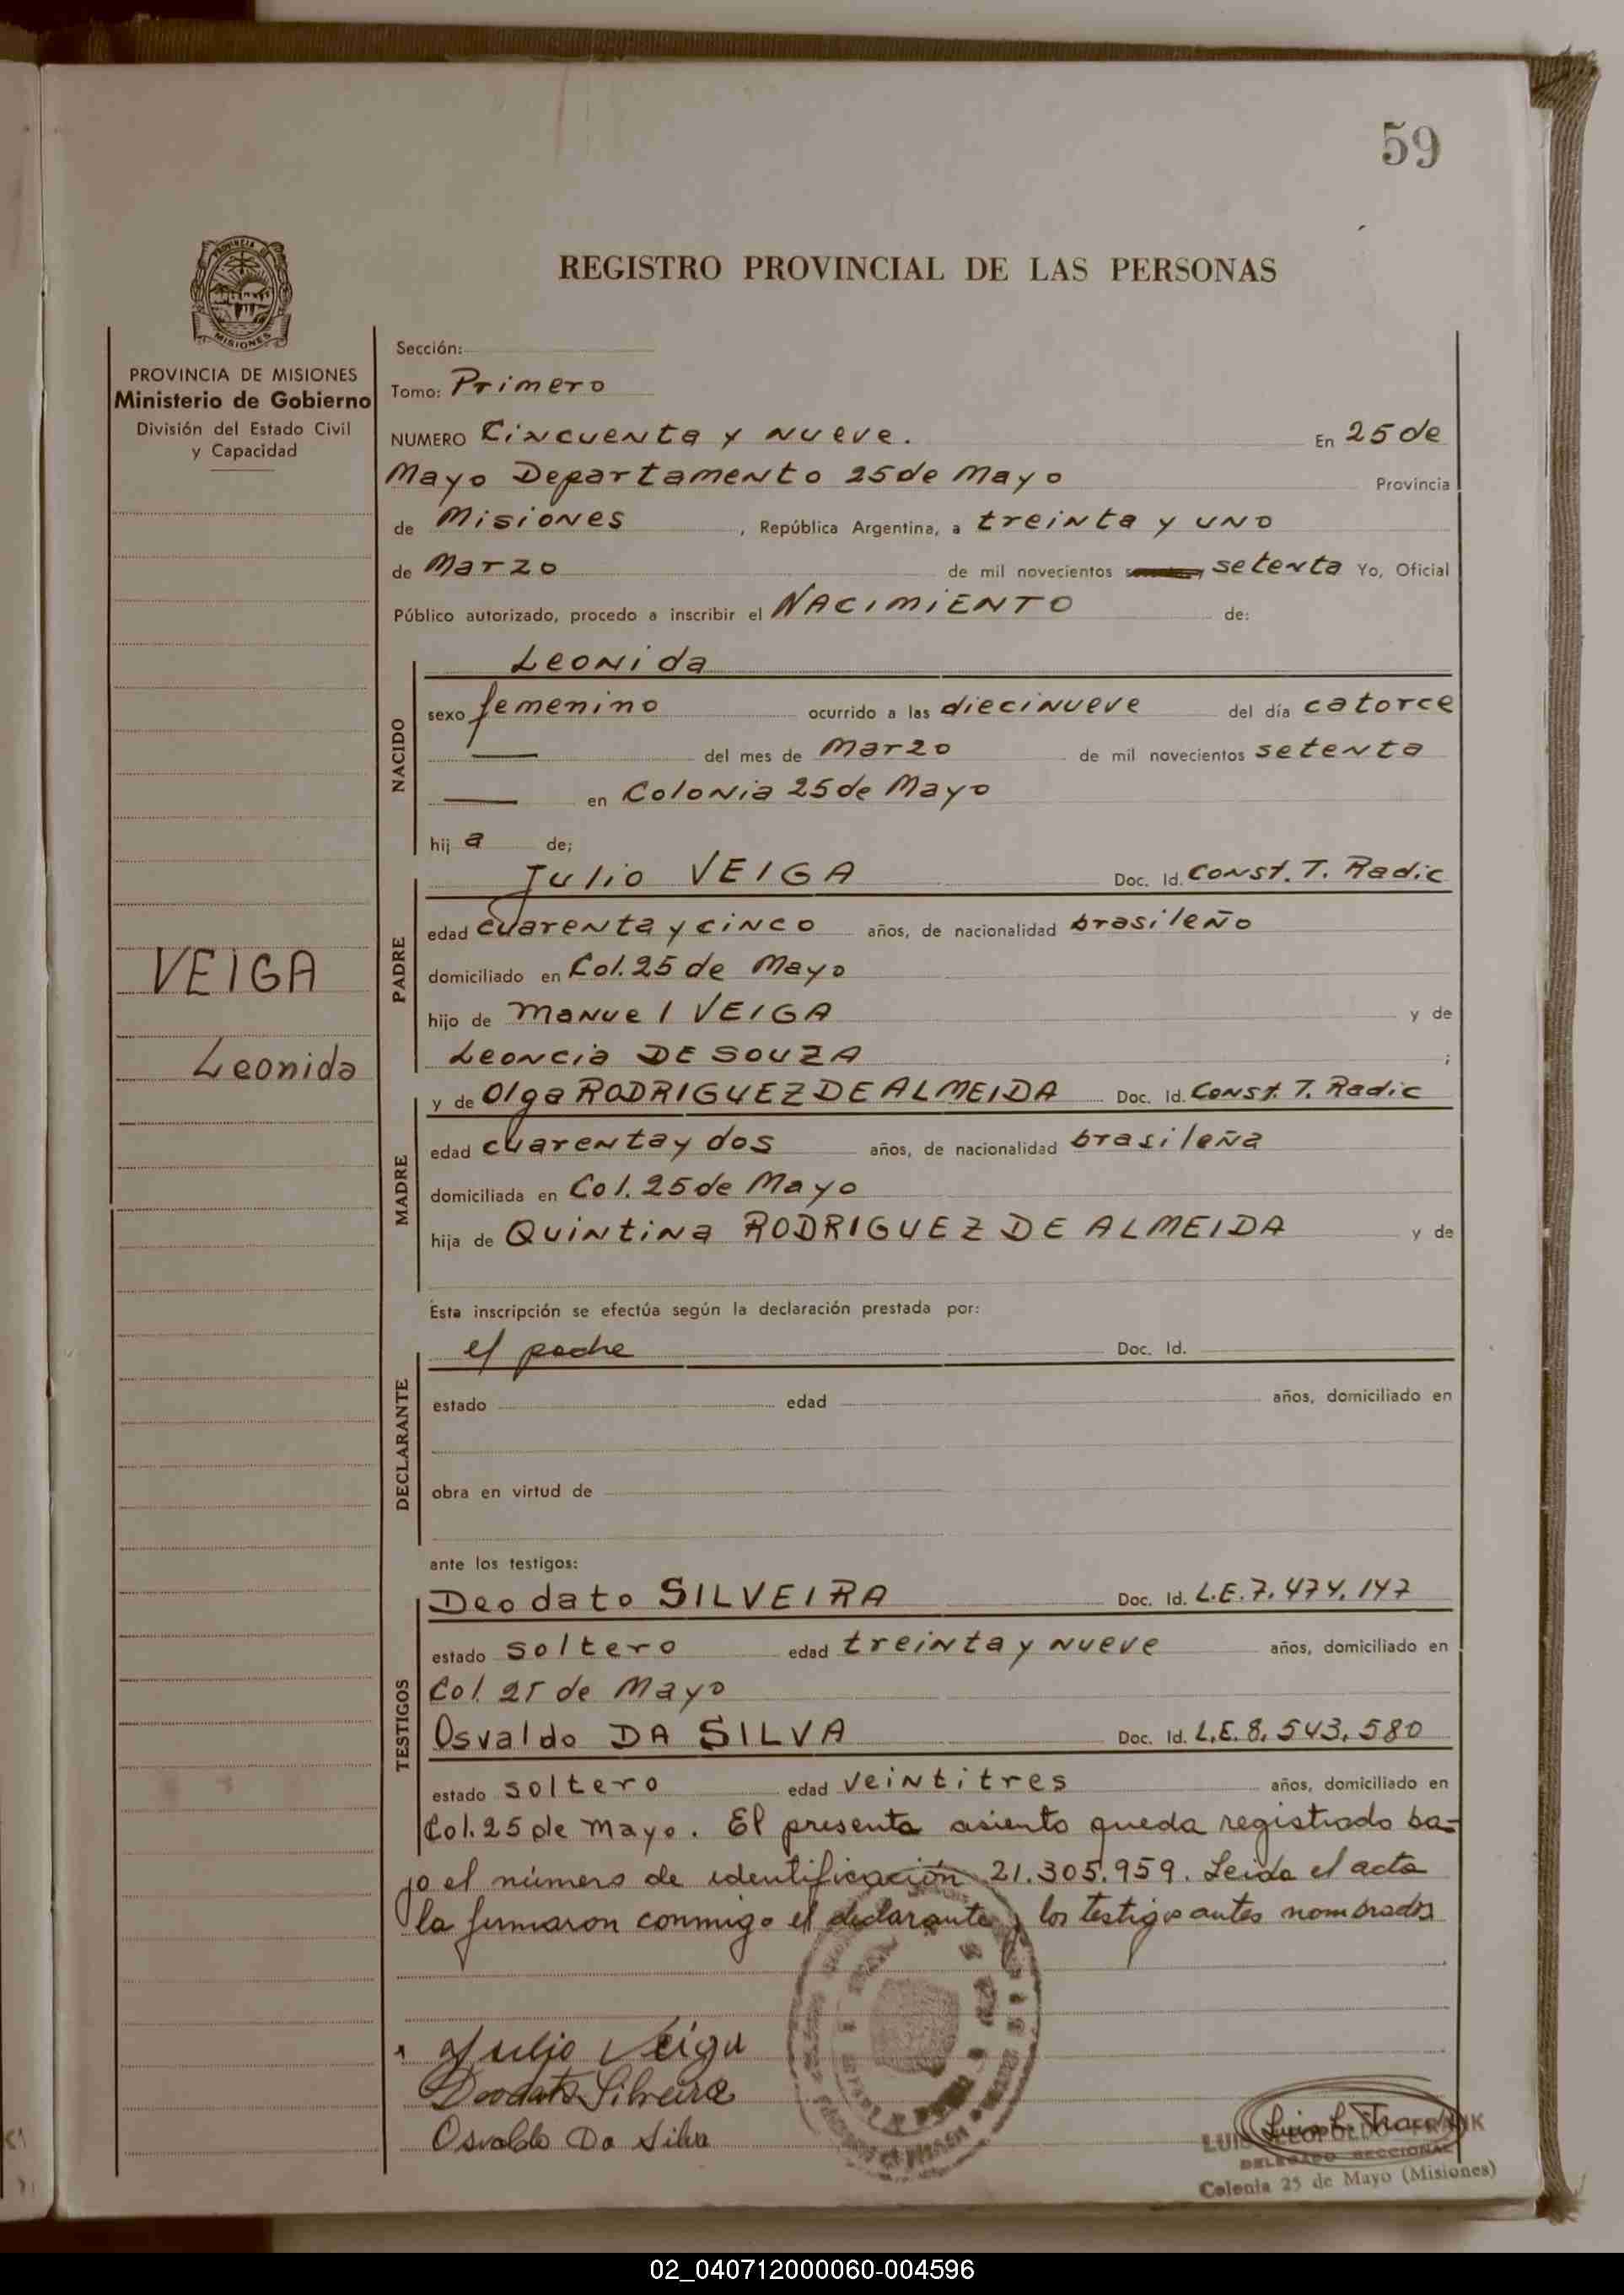 59
PROVINCIA DE
MISIONES
REGISTRO PROVINCIAL DE LAS PERSONAS
PROVINCIA DE MISIONES
Ministerio de Gobierno
División del Estado Civil
y Capacidad
VEIGA
Leonida
Sección:
Tomo: Primero
NUMERO Cincuenta y nueve. En 25 de
Mayo Departamento 25 de Mayo Provincia
de Misiones, República Argentina, a treinta y uno
de Marzo de mil novecientos setenta Yo, Oficial
Público autorizado, procedo a inscribir el NACIMIENTO de:
NACIDO
Leonida
sexo femenino ocurrido a las diecinueve del día catorce
— del mes de Marzo de mil novecientos setenta
— en Colonia 25 de Mayo
hij a de;
PADRE
Julio VEIGA Doc. Id. Const. T. Radic
edad cuarenta y cinco años, de nacionalidad brasileño
domiciliado en Col. 25 de Mayo
hijo de Manuel VEIGA y de
Leoncia DE SOUZA ;
MADRE
y de Olga RODRIGUEZ DE ALMEIDA Doc. Id. Const. T. Radic
edad cuarenta y dos años, de nacionalidad brasileña
domiciliada en Col. 25 de Mayo
hija de Quintina RODRIGUEZ DE ALMEIDA y de
Esta inscripción se efectúa según la declaración prestada por:
DECLARANTE
el padre Doc. Id.
estado edad años, domiciliado en
obra en virtud de
ante los testigos:
TESTIGOS
Deodato SILVEIRA Doc. Id. L.E. 7.474.147
estado soltero edad treinta y nueve años, domiciliado en
Col. 25 de Mayo
Osvaldo DA SILVA Doc. Id. L.E. 8.543.580
estado soltero edad veintitres años, domiciliado en
Col. 25 de Mayo. El presente asiento queda registrado ba-
jo el número de identificación 21.305.959. Leida el acta
la firmaron conmigo el declarante y los testigos antes nombrados
Julio Veiga
Deodato Silveira
Osvaldo Da Silva
LUIS LEOPOLDO FRANK
DELEGADO SECCIONAL
Colonia 25 de Mayo (Misiones)
02_040712000060-004596